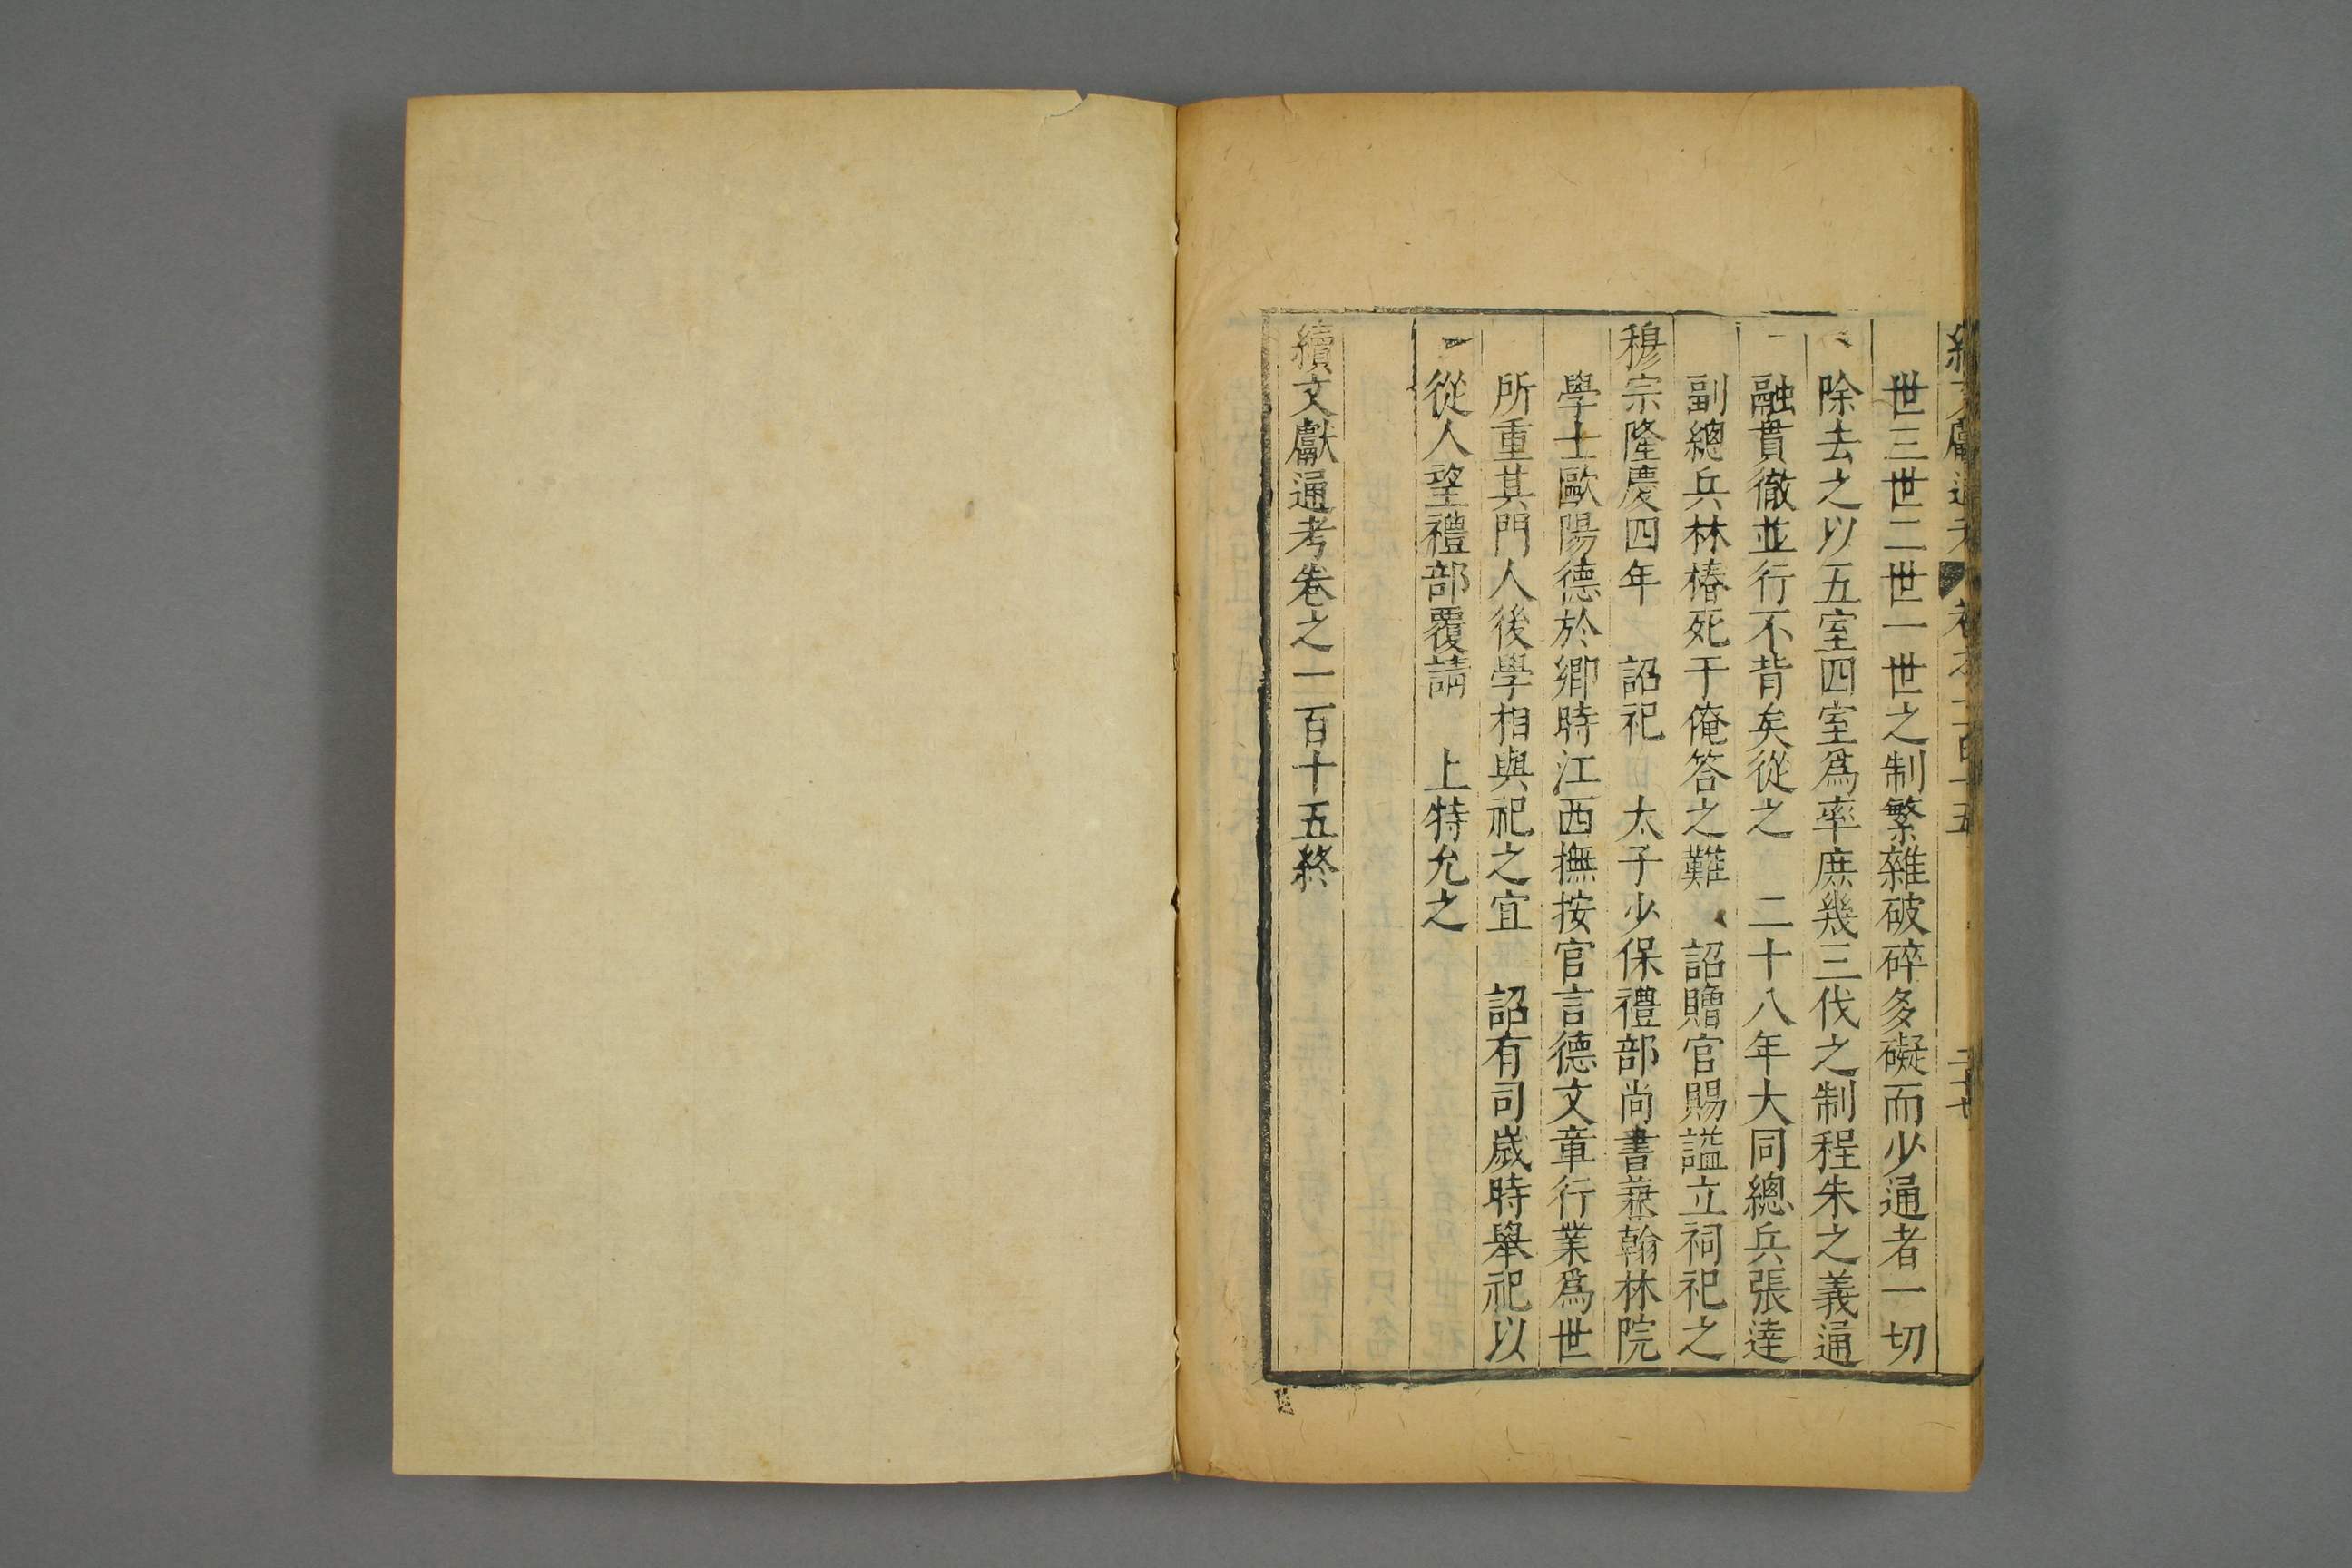 世三世二世一世之制繁雜破碎多礙而少通者一切
除去之以五室四室爲率庶幾三代之制程朱之義通
融貫徹並行不背矣從之　二十八年大同總兵張達
副總兵林椿死于俺答之難　詔贈官賜謚立祠祀之
穆宗隆慶四年　詔祀　太子少保禮部尚書兼翰林院
學士歐陽德於鄉時江西撫按官言德文章行業爲世
所重其門人後學相與祀之宜　詔有司歲時舉祀以
從人望禮部覆請　上特允之
續文獻通考卷之一百十五終